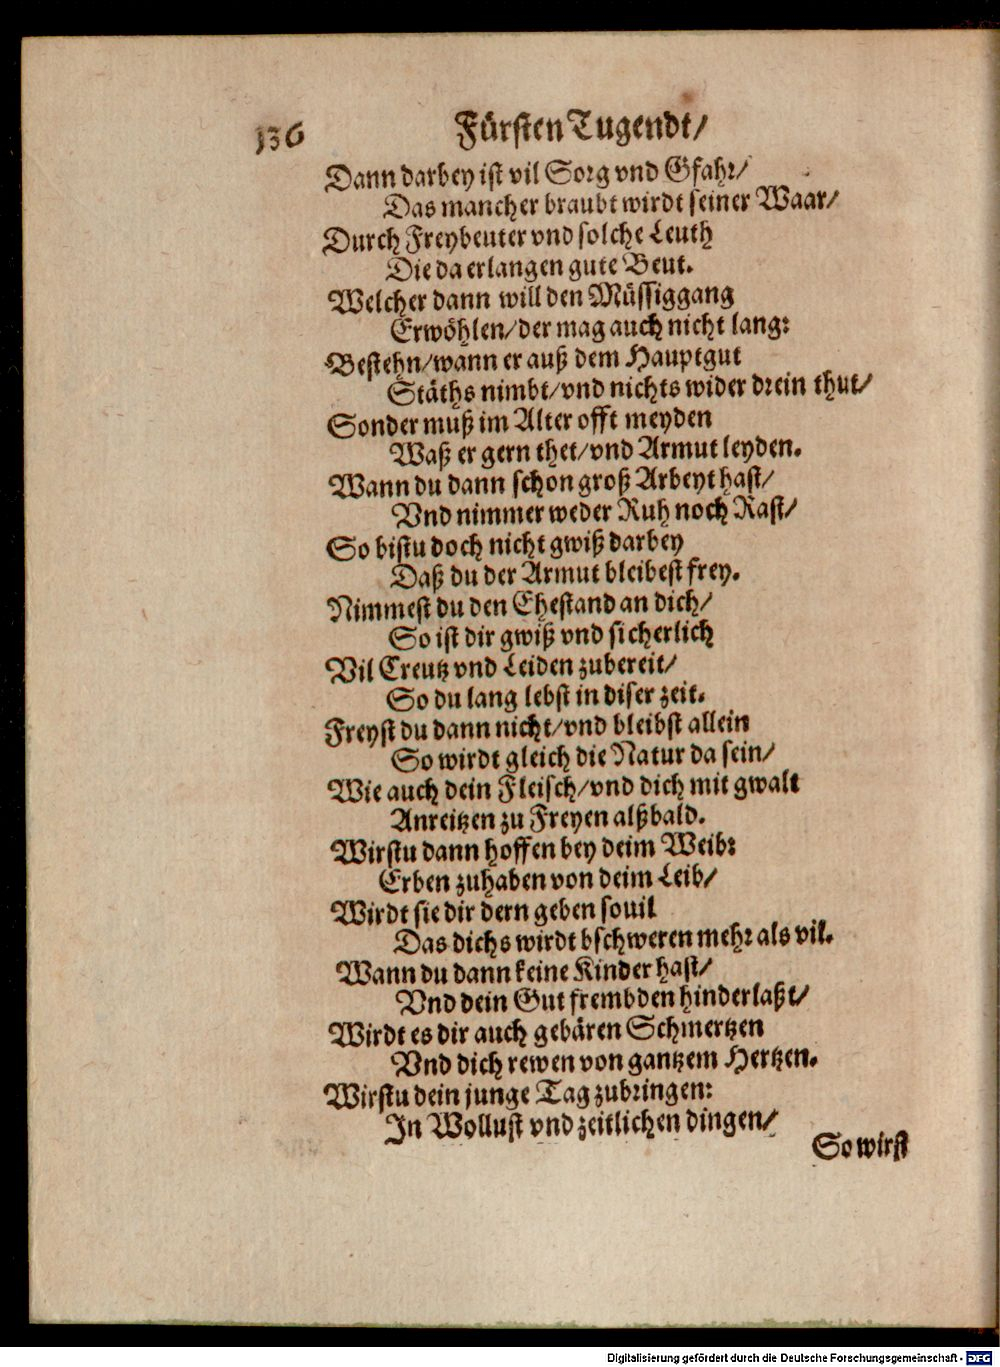 136 Fürsten Tugendt/
Dann darbey ist vil Sorg vnd Gfahr/
Das mancher braubt wirdt seiner Waar/
Durch Freybeuter vnd solche Leuth
Die da erlangen gute Beut.
Welcher dann will den Müssiggang
Erwöhlen/der mag auch nicht lang:
Bestehn/wann er auß dem Hauptgut
Stäths nimbt/vnd nichts wider drein thut/
Sonder muß im Alter offt meyden
Waß er gern thet/vnd Armut leyden.
Wann du dann schon groß Arbeyt hast/
Vnd nimmer weder Ruh noch Rast/
So bistu doch nicht gwiß darbey
Daß du der Armut bleibest frey.
Nimmest du den Ehestand an dich/
So ist dir gwiß vnd sicherlich
Vil Creutz vnd Leiden zubereit/
So du lang lebst in diser zeit.
Freyst du dann nicht/vnd bleibst allein
So wirdt gleich die Natur da sein/
Wie auch dein Fleisch/vnd dich mit gwalt
Anreitzen zu Freyen alßbald.
Wirstu dann hoffen bey deim Weib:
Erben zuhaben von deim Leib/
Wirdt sie dir dern geben souil
Das dichs wirdt bschweren mehr als vil.
Wann du dann keine Kinder hast/
Vnd dein Gut frembden hinderlaßt/
Wirdt es dir auch gebären Schmertzen
Vnd dich rewen von gantzem Hertzen.
Wirstu dein junge Tag zubringen:
In Wollust vnd zeitlichen dingen/
So wirst
Digitalisierung gefördert durch die Deutsche Forschungsgemeinschaft - DFG